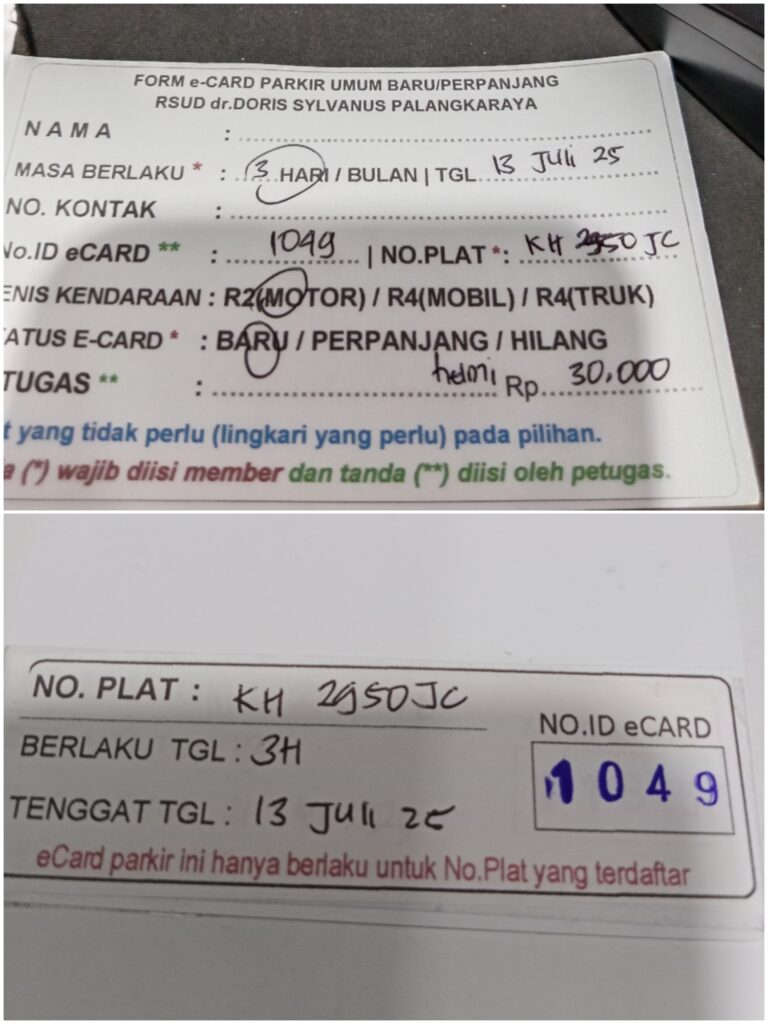 FORM e-CARD PARKIR UMUM BARU/PERPANJANG
RSUD dr.DORIS SYLVANUS PALANGKARAYA
NAMA : 
MASA BERLAKU * : 3 HARI / BULAN | TGL 13 JULI 25
NO. KONTAK :
No.ID eCARD ** : 1049 | NO.PLAT *: KH 2950 JC
ENIS KENDARAAN : R2(MOTOR) / R4(MOBIL) / R4(TRUK)
ATUS E-CARD * : BARU / PERPANJANG / HILANG
TUGAS ** : helmi Rp. 30.000
t yang tidak perlu (lingkari yang perlu) pada pilihan.
a (*) wajib diisi member dan tanda (**) diisi oleh petugas.
NO. PLAT : KH 2950 JC
BERLAKU TGL : 3H
TENGGAT TGL : 13 JULI 25
NO.ID eCARD
1049
eCard parkir ini hanya berlaku untuk No.Plat yang terdaftar